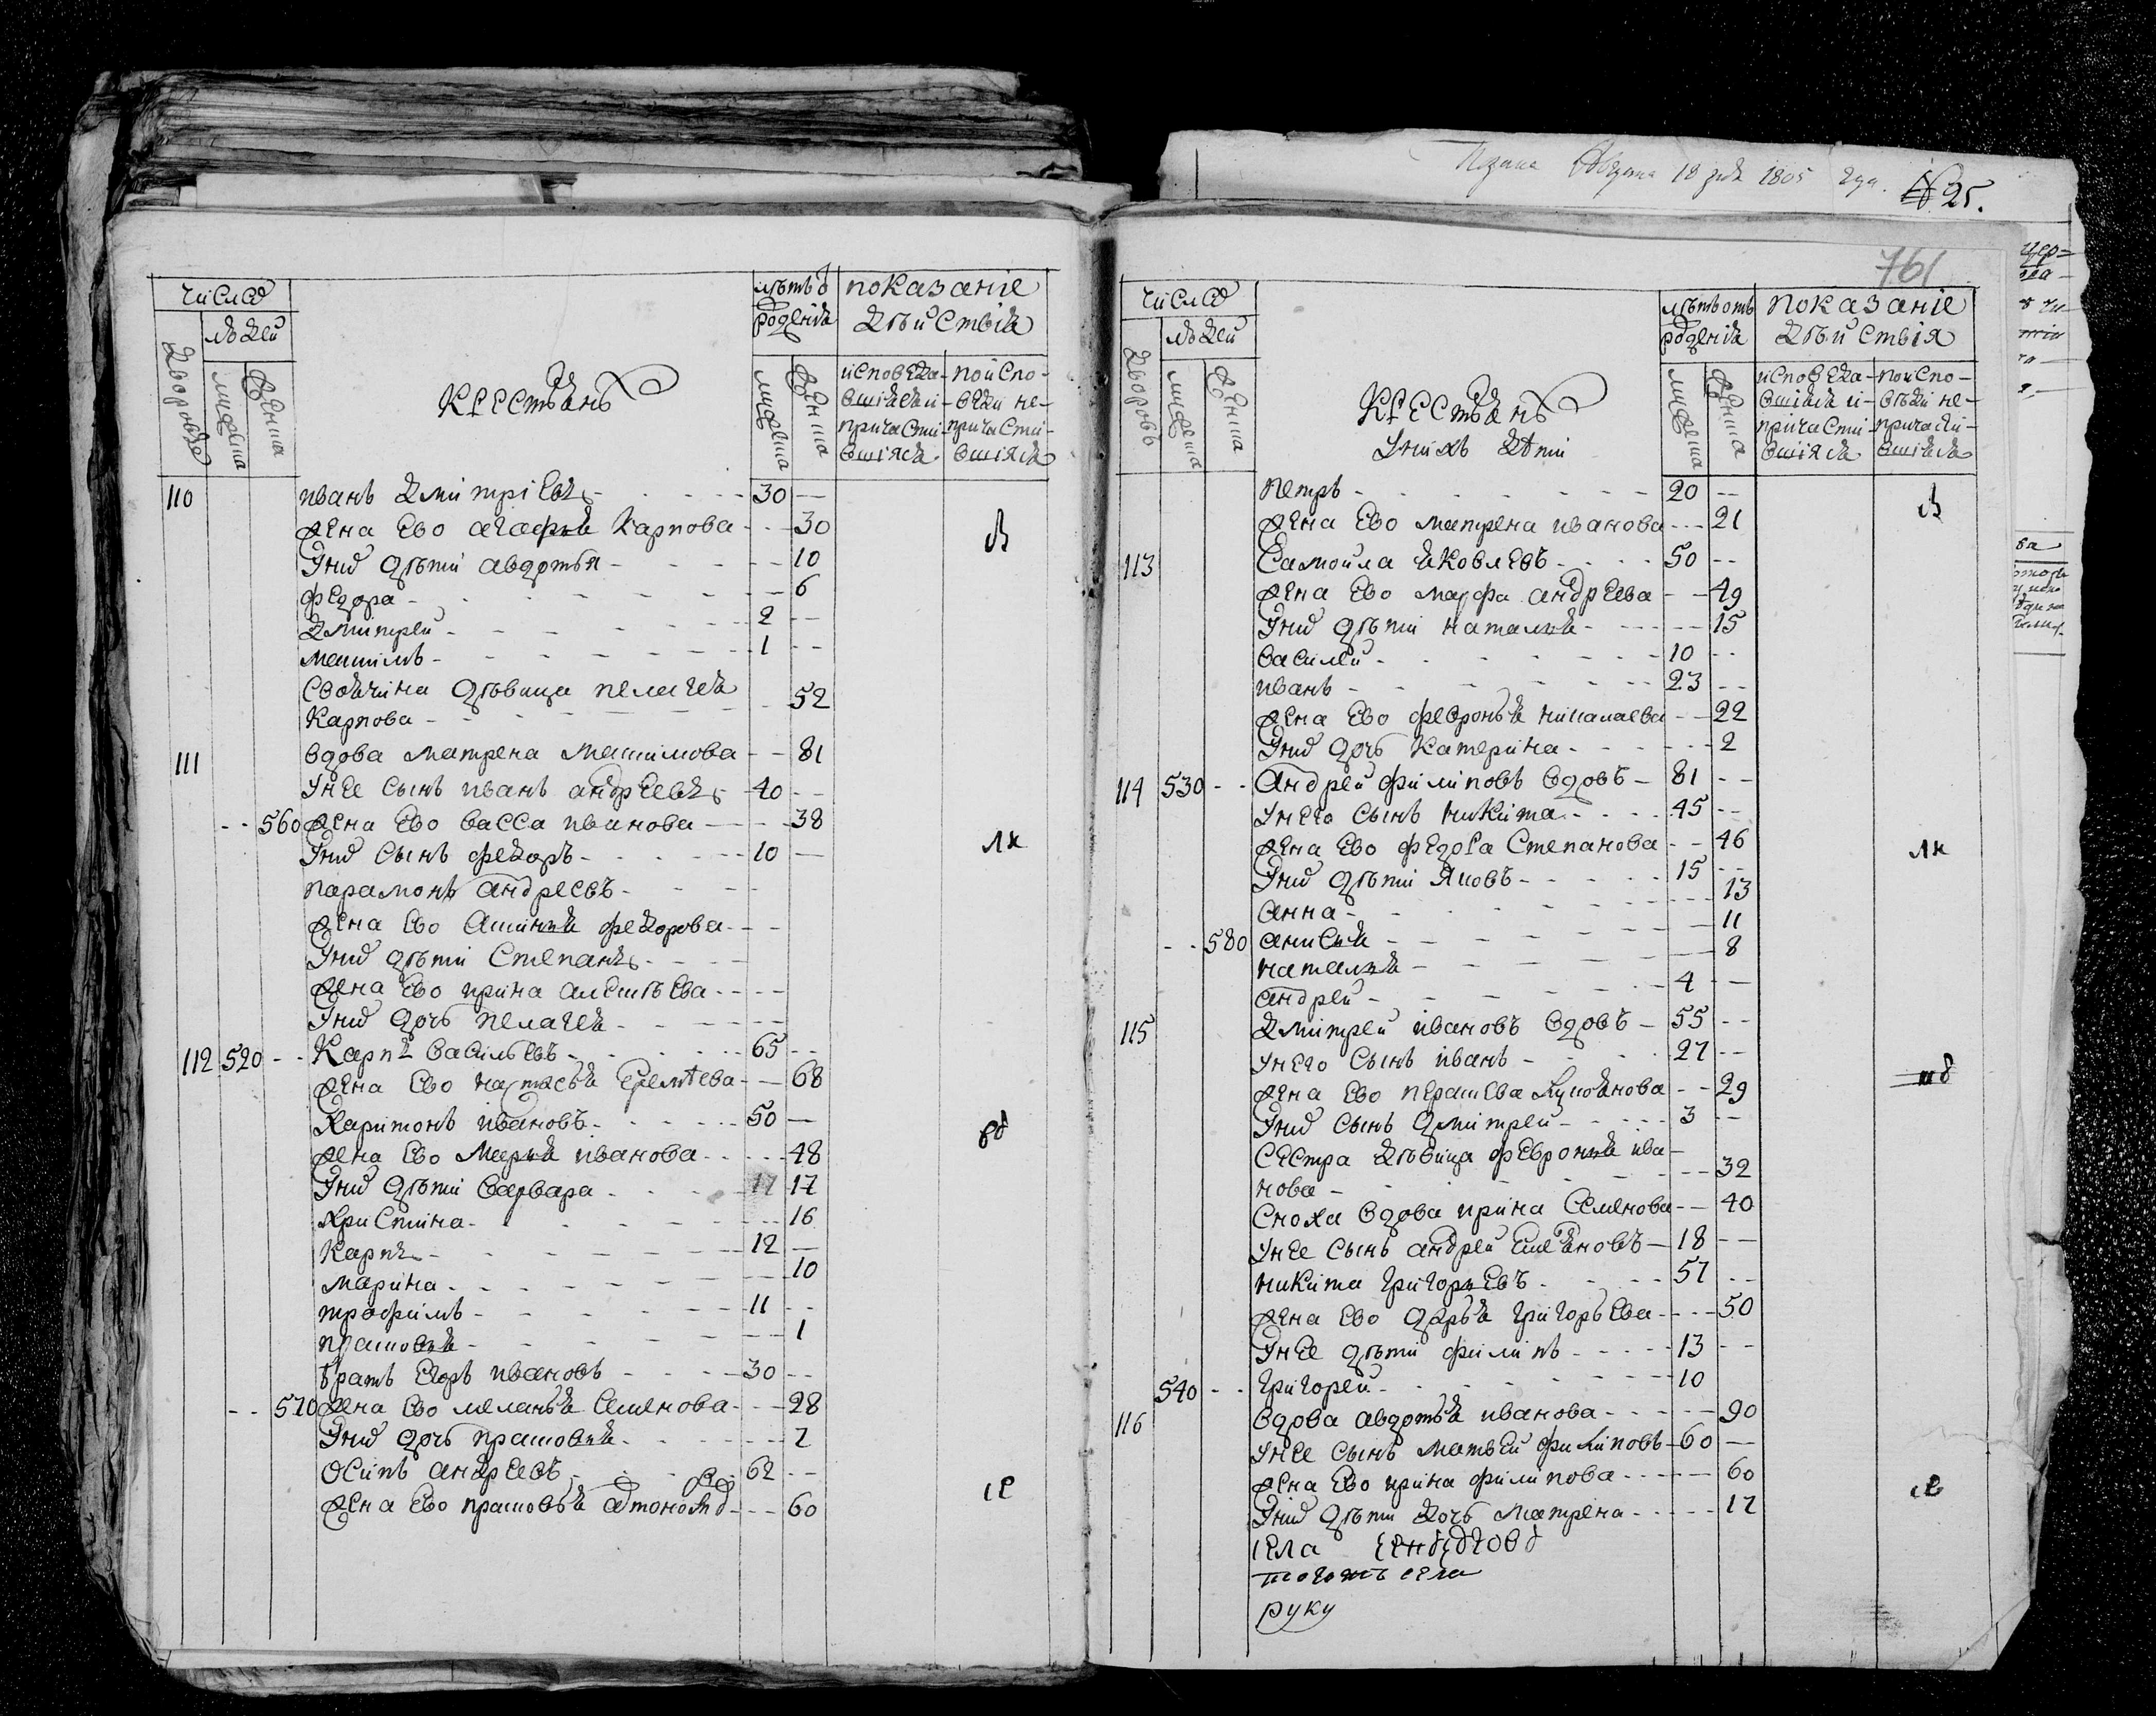 числа
людей
дворовъ
мужеска
женска
крестьянъ
лѣтъ о
рожденія
мужеска
женска
показаніе
дѣйствія
исповѣда-
вшіяся и-
причасти-
вшіяся
по испо-
вѣди не-
причасти-
вшіяся
110 иванъ дмитріевъ 30 —
жена ево агафья карпова 30
У нихъ дѣти авдотья 10
федора 6
дмитрей 2
максимъ 1
своячина дѣвица пелагея
карпова 52
111 вдова матрена максимова 81
у нее сынъ иванъ андреевъ 40
560 жена ево васса иванова 38
У нихъ сынъ федоръ 10 —
парамонъ андреевъ
жена ево аксинья федорова
У нихъ дѣти степанъ
жена ево ирина алексѣева
У нихъ дочь пелагея
112 520 карпъ васильевъ 65
жена ево настасья еремѣева 68
харитонъ ивановъ 50 —
жена ево марья иванова 48
У нихъ дѣти варвара 17 17
христина 16
карпъ 12 —
марина 10
трофимъ 11
прасковья 1
братъ егоръ ивановъ 30
570 жена ево меланья семенова 28
У нихъ дочь прасковья 2
осипъ андреевъ 62
жена ево прасковья 60
761
числа
людей
дворовъ
мужеска
женска
крестьянъ
у нихъ дѣти
лѣтъ отъ
рожденія
мужеска
женска
показаніе
дѣйствія
исповѣда-
вшіяся и-
причасти-
вшіяся
по испо-
вѣди не-
причасти-
вшіяся
петръ 20
жена ево матрена иванова 21
113 самойла яковлевъ 50
жена ево марфа андреева 49
У нихъ дѣти наталья 15
василей 10
иванъ 23
жена ево февронья николаева 22
У нихъ дочь катерина 2
114 530 андрей филиповъ вдовъ 81
у него сынъ никита 45
жена ево федора степанова 46
У нихъ дѣти яковъ 15
анна 13
580 анисья 11
наталья 8
андрей 4
115 дмитрей ивановъ вдовъ 55
у него сынъ иванъ 27
жена ево лукьянова 29
У нихъ сынъ дмитрей 3
сестра дѣвица февронья ива-
нова 32
сноха вдова ирина семенова 40
у нее сынъ андрей 18
никита григорьевъ 57
жена ево дарья григорьева 50
У нее дѣти филипъ 13
540 григорей 10
116 вдова авдотья иванова 90
у нее сынъ матвей филиповъ 60 —
жена ево ирина филипова 60
У нихъ дѣти дочь матрена 17
села
тогожъ села
руку
1805
№ 25.